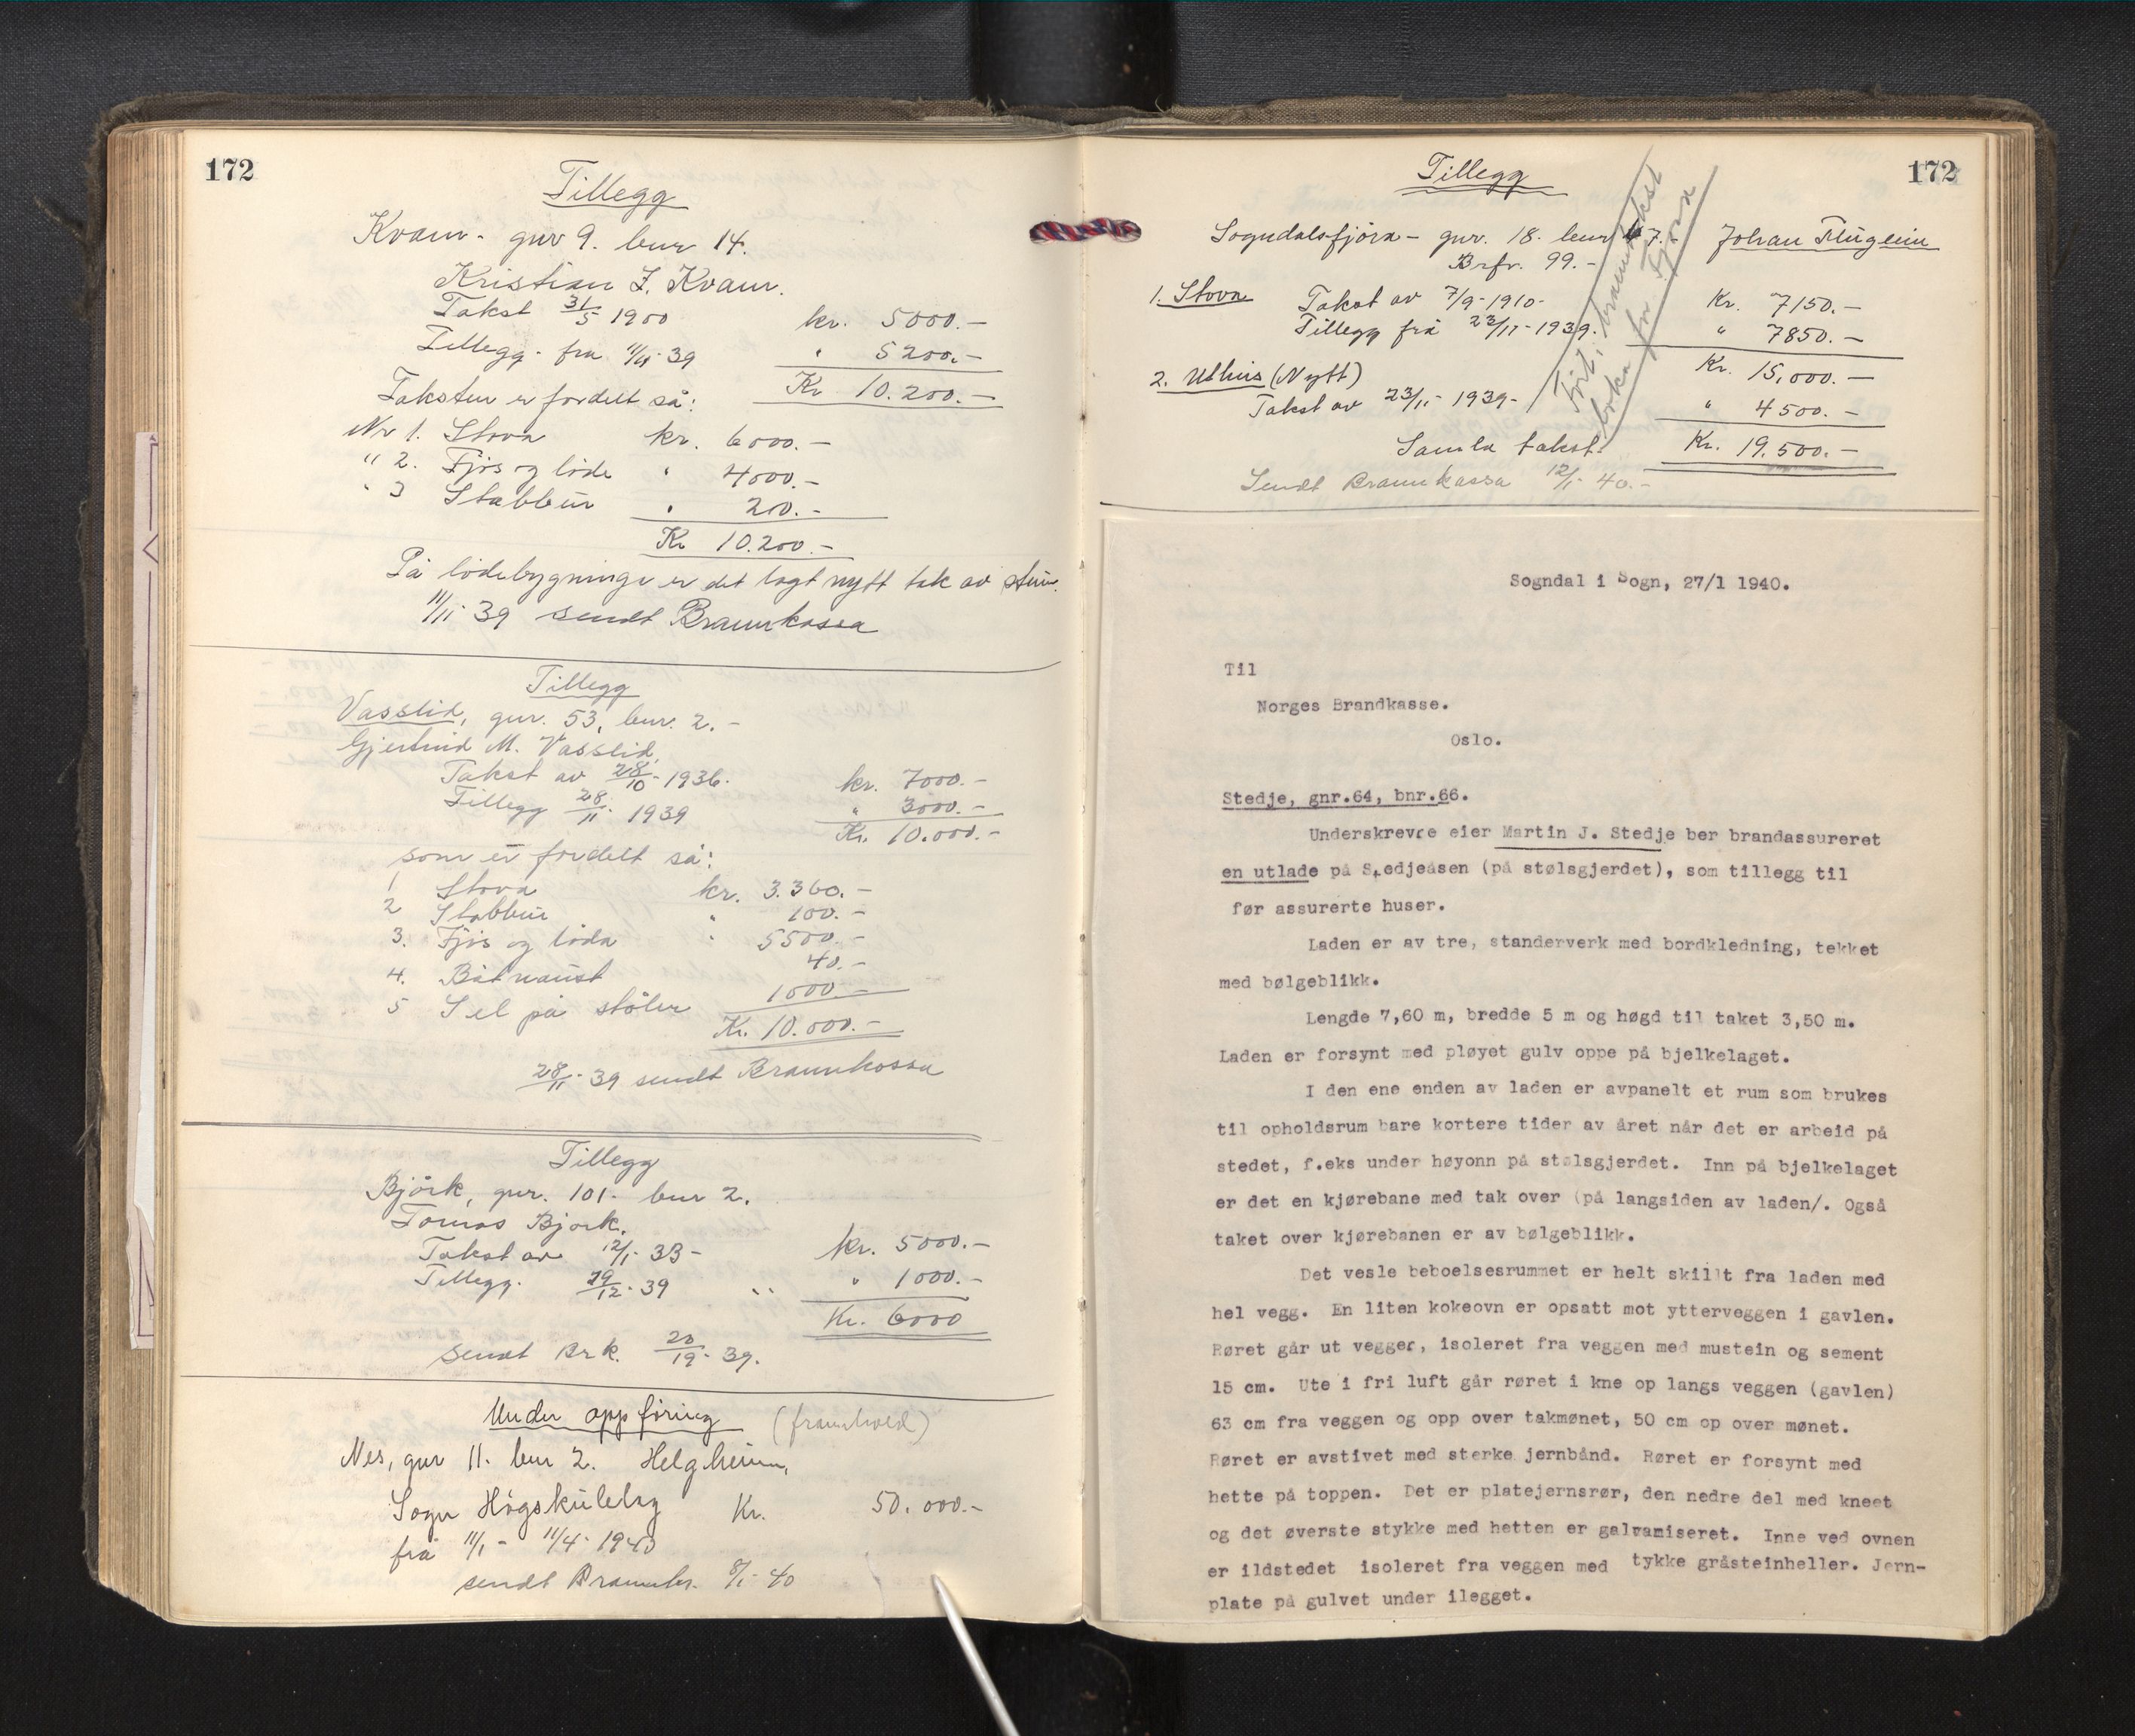 172
Tillegg
Kvam - gnr 9. bnr 14.
Kristian J. Kvam.
Takst 31/5 1900 kr. 5000.-
Tillegg - fra 11/11 - 39 " 5200.-
Kr 10.200.-
Taksten er fordelt så:
Nr 1. Stova kr. 6000.-
" 2. Fjøs og löde " 4000.-
" 3 Stabbur " 200.-
Kr 10.200.-
På lödebygninge er det lagt nytt tak av
11/11 - 39 sendt Brannkassa
Tillegg
Vasslid, gnr. 53, bnr. 2. -
Gjertrud M. Vasslid.
Takst av 28/10 - 1936. kr. 7000.-
Tillegg 28/11 - 1939 " 3000.-
Kr. 10.000.-
som er fordelt så:
1 Stova kr. 3.360.-
2 Stabbur " 100.-
3. Fjös og löda " 5500.-
4. Båtnaust 40.-
5 Sel på stölen 1000.-
Kr. 10.000.-
28/11 - 39 sendt Brannkassa
Tillegg
Björk, gnr. 101 - bnr 2.
Tomas Björk.
Takst av 12/1 - 33 - kr. 5000.-
Tillegg. 19/12 - 39 " 1000.-
Kr. 6000
Sendt Brk. 20/19 - 39.
Under oppföring (framhald)
Nes, gnr 11. bnr 2. Helgheim,
Sogn Högskulelag Kr. 50.000.-
frå 11/1 - 11/4 - 1940
sendt Brannks. 8/1 - 40
172
Tillegg
Sogndalsfjöra - gnr. 18. bnr 67. - Johan Flugeim
Brfr. 99. -
1. Stova Takst av 7/9 - 1910 - Kr. 7150.-
Tillegg frå 23/11 - 1939. " 7850.-
Kr. 15.000.-
2. Uthus (Nytt)
Takst av 23/11 - 1939 - " 4500.-
Samla takst. Kr. 19.500.-
Sendt Brannkassa 12/1 - 40. -
Fört i branntakst
boka for Fjöra
Sogndal i Sogn, 27/1 1940.
Til
Norges Brandkasse.
Oslo.
Stedje, gnr.64, bnr.66.
Underskrevne eier Martin J. Stedje ber brandassureret
en utlade på Stedjeåsen (på stølsgjerdet), som tillegg til
før assurerte huser.
Laden er av tre, standerverk med bordkledning, tekket
med bølgeblikk.
Lengde 7,60 m, bredde 5 m og høgd til taket 3,50 m.
Laden er forsynt med pløyet gulv oppe på bjelkelaget.
I den ene enden av laden er avpanelt et rum som brukes
til opholdsrum bare kortere tider av året når det er arbeid på
stedet, f.eks under høyonn på stølsgjerdet. Inn på bjelkelaget
er det en kjørebane med tak over (på langsiden av laden/. Også
taket over kjørebanen er av bølgeblikk.
Det vesle beboelsesrummet er helt skillt fra laden med
hel vegg. En liten kokeovn er opsatt mot ytterveggen i gavlen.
Røret går ut veggen, isoleret fra veggen med mustein og sement
15 cm. Ute i fri luft går røret i kne op langs veggen (gavlen)
63 cm fra veggen og opp over takmønet, 50 cm op over mønet.
Røret er avstivet med sterke jernbånd. Røret er forsynt med
hette på toppen. Det er platejernsrør, den nedre del med kneet
og det øverste stykke med hetten er galvamiseret. Inne ved ovnen
er ildstedet isoleret fra veggen med tykke gråsteinheller. Jern-
plate på gulvet under ilegget.